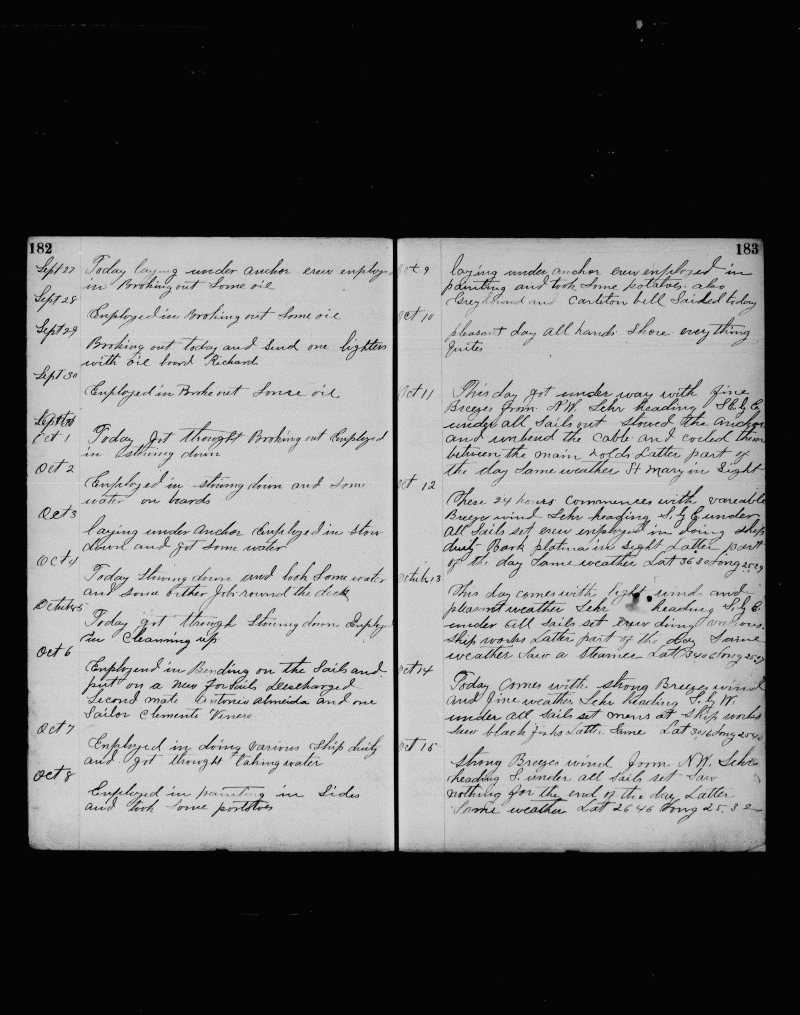 182
Sept 27 Today laying under anchor crew employed
in Broking out Some oil
Sept 28
Employed in Broking out Some oil
Sept 29
Broking out today and send one lighter
with oil bord Richard
Sept 30
Employed in Broke out Some oil
Oct 1 Today got thought Broking out Employed
in Sthuing down
Oct 2
Employed in sthuing down and Some
water on boards
Oct 3
laying under Anchor Employed in stow
down and got Some water
Oct 4
Today Sthuing down and took Some water
and Some other Job round the deck
October 5
Today got through Stouing down Employed
in Cleanning up
Oct 6
Employend in Bending on the Sails and
put on a new forSails Descharged
Second mate Antonio almeida and one
Sailor Clemente Vieira
Oct 7
Employed in doing various Ship duity
and got thought taking water
Oct 8
Employed in painting in Sides
and took Some portatoes
183
Oct 9 laying under anchor crew employed in
painting and took Some potatoes also
Greyhound and Carleton bell Sailed today
Oct 10
pleasant day all hands Shore everything
quites
Oct 11 This day got under way with fine
Breezes from N.W. Schr heading S.E. by E.
under all Sails out Stowed the anchor
and unbend the Cable and coiled them
between the main holds Latter part of
the day Same weather St Mary in Sight
Oct 12
These 24 hours Commences with vareable
Breeze wind Schr heading S. by E under
all Sails set crew employed in doing ship
duity Bark platina in sight Latter part
of the day Same weather Lat 36 30 Long 25 29
October 13
This day comes with light wind and
pleasant weather Schr heading S. by E.
under all Sails set crew doing various
Ship works Latter part of the day Same
weather Saw a Steamer Lat 34 06 Long 25 27
Oct 14
Today Comes with strong Breezes wind
and fine weather Schr heading S. by W.
under all Sails set mens at Ship works
Saw black fishs Latter Same Lat 30 16 Long 25 40
Oct 15
Strong Breezes wind from N.W. Schr
heading S. under all Sails set Saw
nothing for the end of the day Latter
Same weather Lat 26 46 Long 25.32